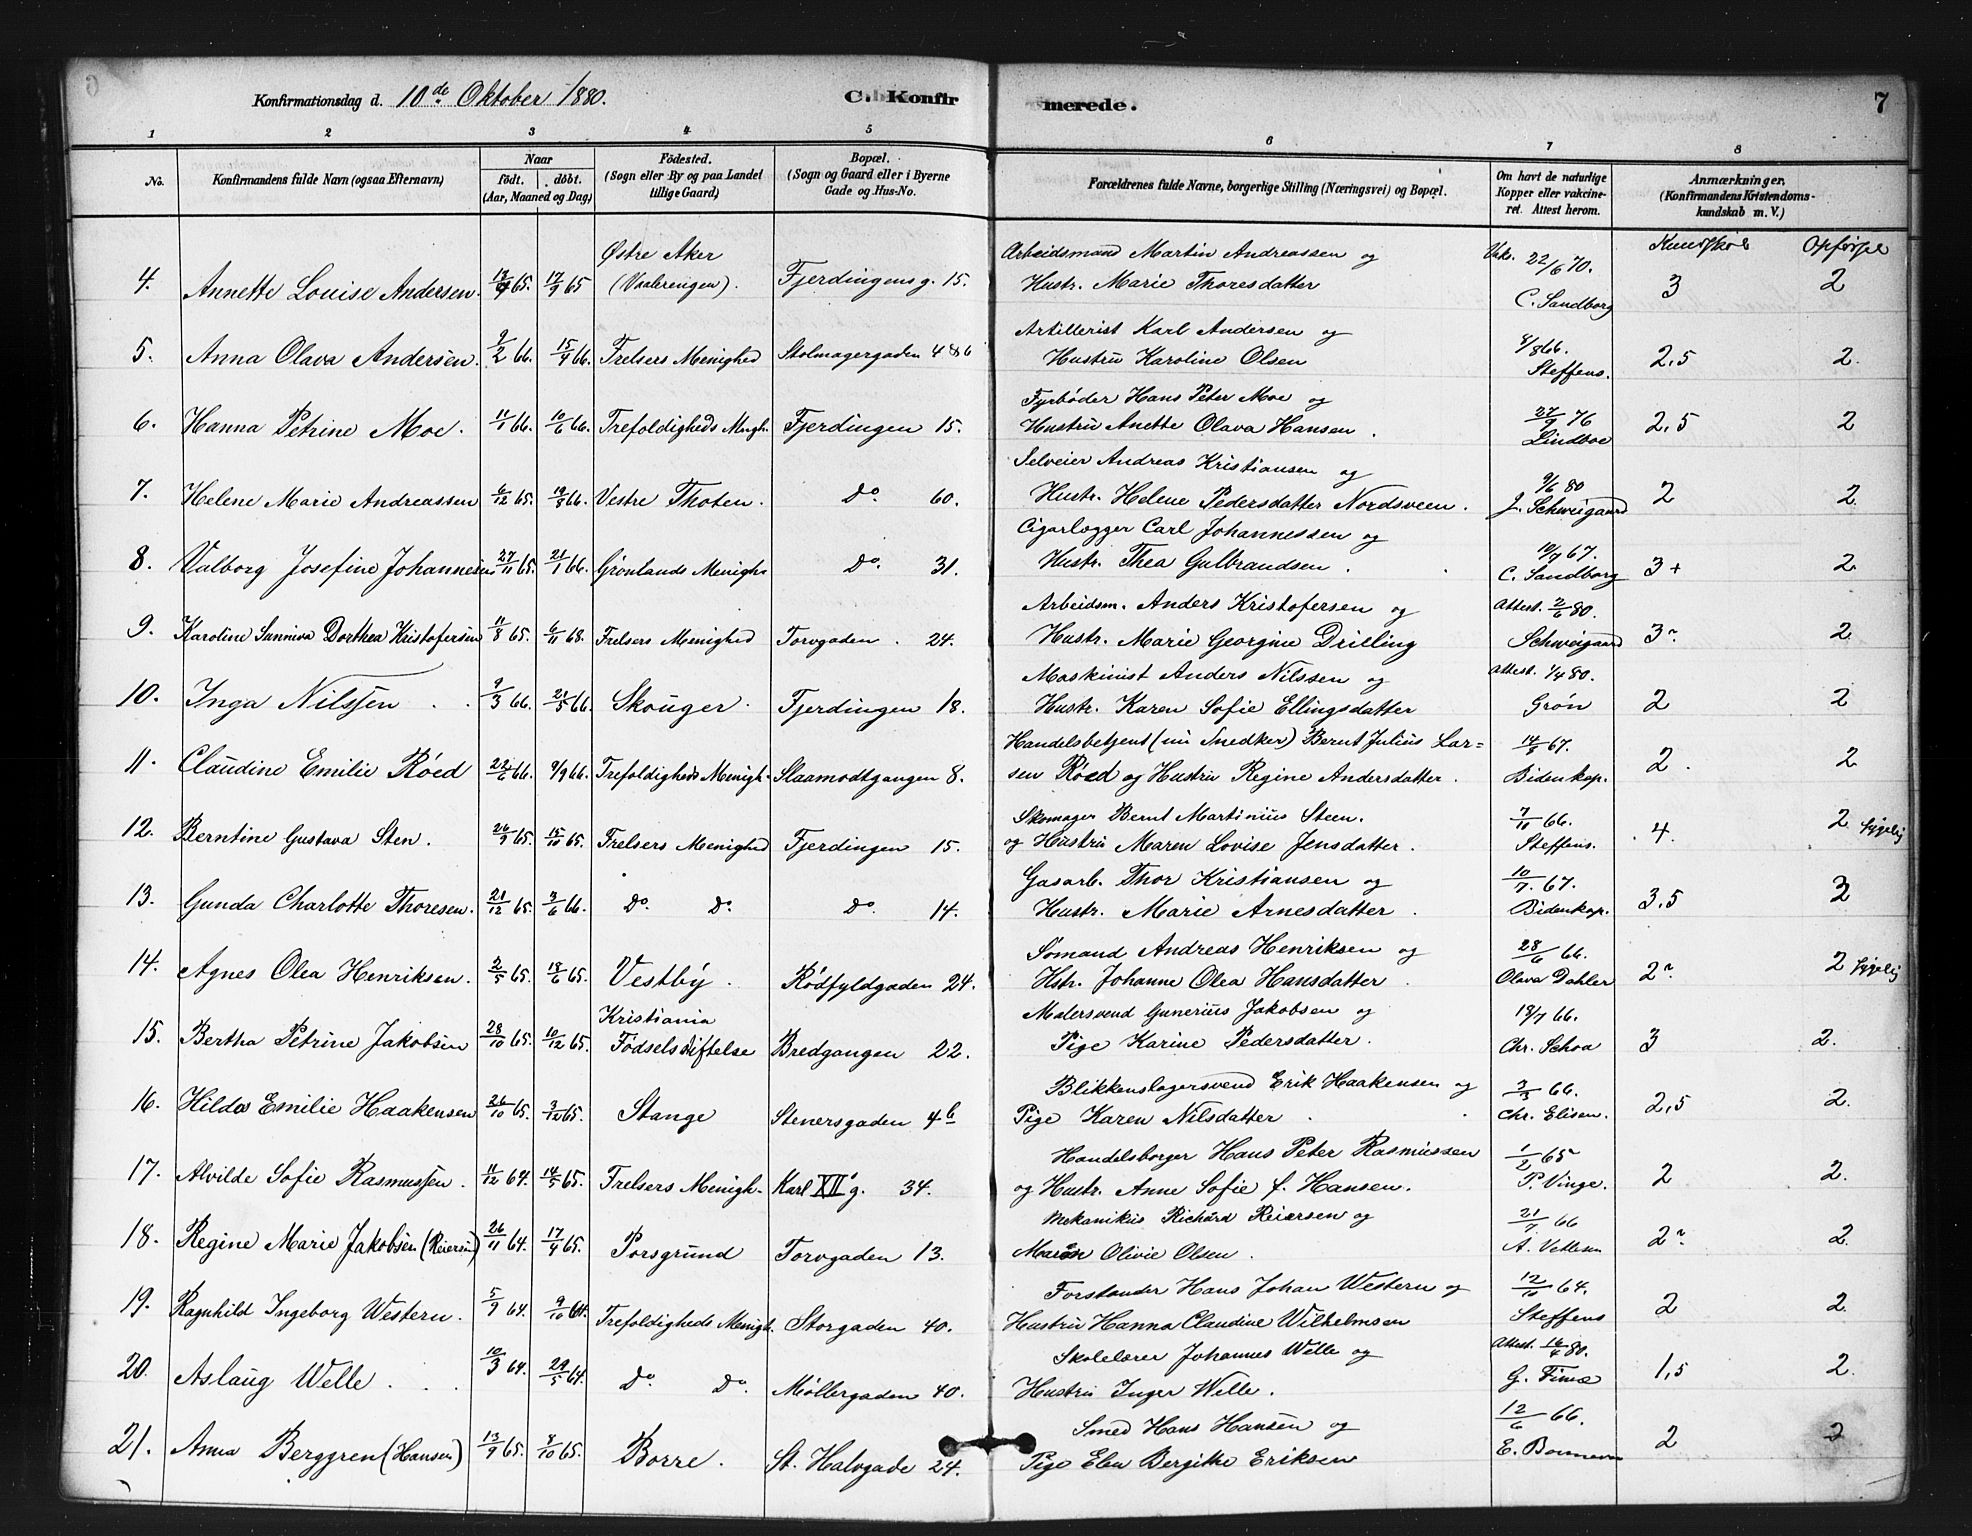 6
Konfirmationsdag d. 10de Oktober 1880.
C. Konfir
merede.
7
1 2 3 4 5 6 7 8
No.
Konfirmandens fulde Navn (ogsaa Efternavn)
Naar
født. døbt.
(Aar, Maaned og Dag)
Fødested.
(Sogn eller By og paa Landet
tillige Gaard)
Bopæl.
(Sogn og Gaard eller i Byerne
Gade og Hus-No.
Forældrenes fulde Navne, borgerlige Stilling (Næringsvei) og Bopæl.
Om havt de naturlige
Kopper eller vakcine-
ret. Attest herom.
Anmærkninger,
(Konfirmandens Kristendoms-
kundskab m. V.)
Kundskab Opførsel
Østre Aker Arbeidsmand Martin Andreassen og Vakc. 22/6 70.
4. Annette Louise Andersen. 65. 17/9 65 (Vaalerengen). Fjerdingens g. 15. Hustr. Marie Thoresdatter C. Sandborg 3 2
Artillerist Karl Andersen og 8/8 66.
5. Anna Olava Andersen. 9/2 66. 15/4 66. Frelsers Menighed Stolmagergaden Hustru Karoline Olsen Steffens. 2,5 2.
Fyrbøder Hans Peter Moe og 27/9 76
6. Hanna Petrine Moe. 11/1 66. 10/6 66. Trefoldigheds Mengh. Fjerdingen 15. Hustru Anette Olava Hansen. Lindboe 2,5 2
Selveier Andreas Kristiansen og 9/6 80
7. Helene Marie Andreassen 6/12 65. 19/3 66. Vestre Thoten. Do. 60. Hustr. Helene Pedersdatter Nordsveen. J. Schweigaard 2 2.
Cigarlægger Carl Johannessen og 19/7 67.
8. Valborg Josefine Johannesen 27/11 65. 21/1 66. Grønlands Menigh. Do. 31. Hustr. Thea Gulbrandsen. C. Sandborg 3+ 2.
Arbeidsm. Anders Kristofersen og Attest. 2/6 80.
9. Karoline Sunniva Dorthea Kristofersen 11/8 65. 6/11 68. Frelsers Menighed Torvgaden. 24. Hustr. Marie Georgine Drilling Schweigaard 3 2.
Maskinist Anders Nilssen og Attest. 1/4 80.
10. Inga Nilssen 9/3 66. 21/5 66. Skouger. Fjerdingen 18. Hustr. Karen Sofie Ellingsdatter Grøn 2 2
Handelsbetjent (nu Snedker) Bernt Julius Lar= 14/5 67.
11. Claudine Emilie Røed 22/6 66. 9/9 66. Trefoldigheds Menigh. Slaamodtgangen 8. sen Røed og Hustru Regine Andersdatter. Bidenkap. 2. 2
Skomager Bernt Martinius Steen. 7/10 66.
12. Berntine Gustava Sten. 26/9 65. 15/10 65. Frelsers Menighed Fjerdingen 15. og Hustru Maren Lovise Jensdatter. Steffens. 4. 2 sygelig
Gasarb. Thor Kristiansen og 10/7. 67.
13. Gunda Charlotte Thoresen. 21/12 65. 3/6 66. Do. Do. Do. 14. Hustr. Marie Arnesdatter. Bidenkap. 3,5 2
Sømand Andreas Henriksen og 28/6 66.
14. Agnes Olea Henriksen. 2/5 65. 18/6 65. Vestby. Rødfyldgaden 24. Hstr. Johanne Olea Hansdatter. Olava Dahler 2 2 sygelig
Kristiania Malersvend Gunerius Jakobsen og 18/7 66.
15. Bertha Petrine Jakobsen 28/10 65. 10/12 65. Fødselsstiftelse Bredgangen 22. Pige Karine Pedersdatter. Chr. Schoa 3 2.
Blikkenslagersvend Erik Haakensen og 66.
16. Hilda Emilie Haakensen 26/10 65. 3/12 65. Stange Stenersgaden 4b Pige Karen Nilsdatter. Chr. Elisen. 2,5 2.
Handelsborger Hans Peter Rasmussen 1/2 65
17. Alvilde Sofie Rasmussen. 11/12 64. 14/5 65. Frelsers Menigh. Karl XII's g. 34. og Hustr. Anne Sofie f. Hansen. P. Vinge. 2 2.
Mekanikus Richard Reiersen og 21/7 66
18. Regine Marie Jakobsen (Reiersen) 26/11 64. 17/4 65. Porsgrund Torvgaden 13. Maren Olivie Olsen. A. Vetlesen 2 2.
Forstander Hans Johan Western og 12/10 64.
19. Ragnhild Ingeborg Western. 5/9 64. 9/10 64. Trefoldigheds Menigh. Storgaden 40. Hustru Hanna Claudine Wilhelmsen Steffens 2 2.
Skolelærer Johannes Welle og Attest. 16/4 80.
20. Aslaug Welle. 10/3 64. 29/5 64. Do. Do. Møllergaden 40. Hustru Inger Welle. G. 1,5 2.
Smed Hans Hansen og 12/6 66.
21. Anna Berggren (Hansen) 13/9 65. 8/10 65. Borre. St. Halvgade 24. Pige Elen Bergithe Eriksen E. Bonnevie 2 2